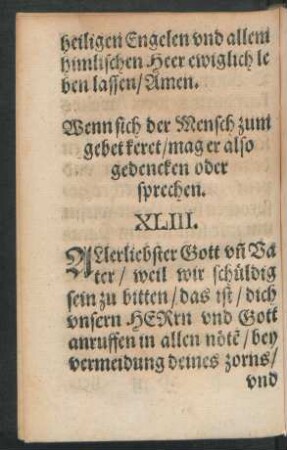 heiligen Engelen vnd allem
himlischen Heer ewiglich le
ben lassen/Amen.
Wenn sich der Mensch zum
gebet keret/mag er also
gedencken oder
sprechen.
XLIII.
ALlerliebster Gott vñ Va
ter/ weil wir schüldig
sein zu bitten/das ist/dich
vnsern HERrn vnd Gott
anruffen in allen nötẽ/bey
vermeidung deines zorns/
vnd